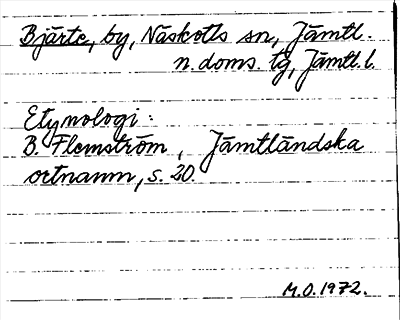 Bjärte, by, Näskotts sn, Jämtl.
n. doms. tg, Jämtl. l.
Etymologi:
B. Flemström, Jämtländska
ortnamn, s. 20.
M.O. 1972.